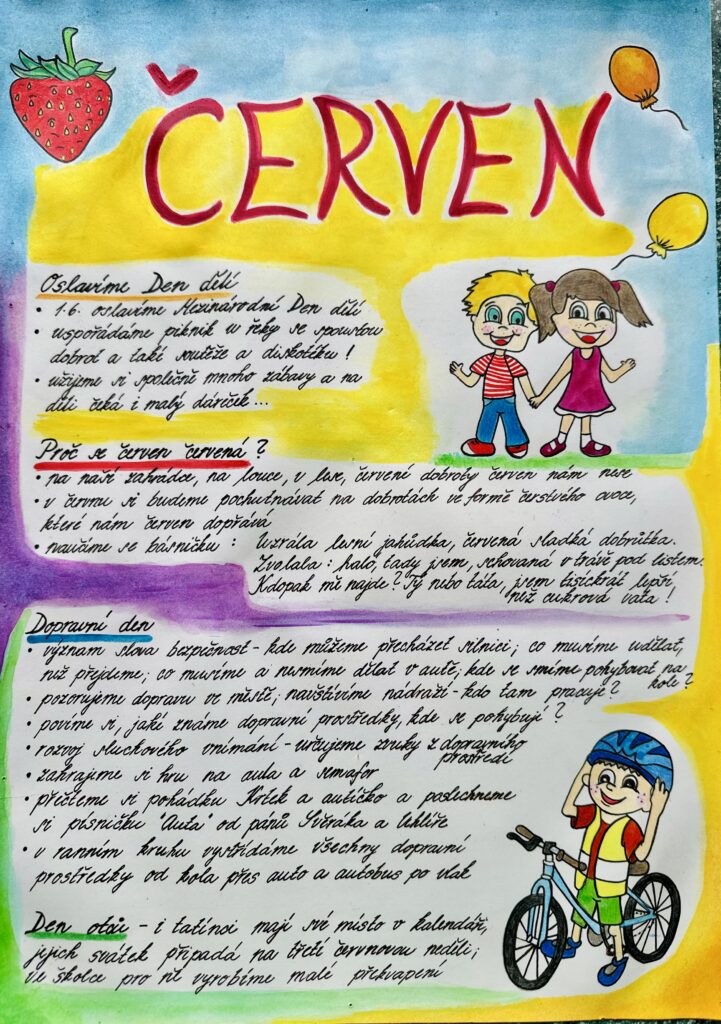 ČERVEN
Oslavíme Den dětí
• 1.6. oslavíme Mezinárodní Den dětí
• uspořádáme piknik u řeky se spoustou
dobrot a také soutěže a diskotéku!
• užijeme si společně mnoho zábavy a na
děti čeká i malý dáreček...
Proč se červen červená?
• na naší zahrádce, na louce, v lese, červené dobroty červen nám nese
• v červnu si budeme pochutnávat na dobrotách ve formě čerstvého ovoce,
které nám červen dopřává
• naučíme se básničku: Uzrála lesní jahůdka, červená sladká dobrůtka.
Zvolala: haló, tady jsem, schovaná v trávě pod listem.
Kdopak mě najde? Ty nebo táta, jsem tisíckrát lepší
než cukrová vata!
Dopravní den
• význam slova bezpečnost - kde můžeme přecházet silnici; co musíme udělat,
než přejdeme; co musíme a nesmíme dělat v autě; kde se smíme pohybovat na
kole?
• pozorujeme dopravu ve městě; navštívíme nádraží - kdo tam pracuje?
• povíme si, jaké známe dopravní prostředky, kde se pohybují?
• rozvoj sluchového vnímání - určujeme zvuky z dopravního
prostředí
• zahrajeme si hru na auta a semafor
• přečteme si pohádku Krtek a autíčko a poslechneme
si písničku "Auta" od pánů Svěráka a Uhlíře
• v ranním kruhu vystřídáme všechny dopravní
prostředky od kola přes auto a autobus po vlak
Den otců - i tatínci mají své místo v kalendáři,
jejich svátek připadá na třetí červnovou neděli;
ve školce pro ně vyrobíme malé překvapení